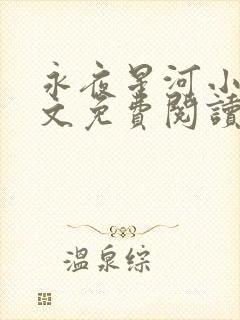 永夜星河小
文免費閱讀
溫泉綜